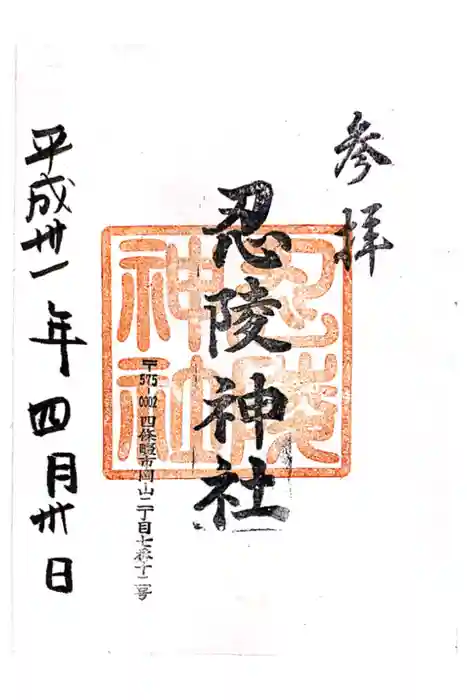 参拝
忍陵神社
忍陵神社
〒575-0002 四條畷市岡山二丁目七番十二号
平成卅一年四月卅日